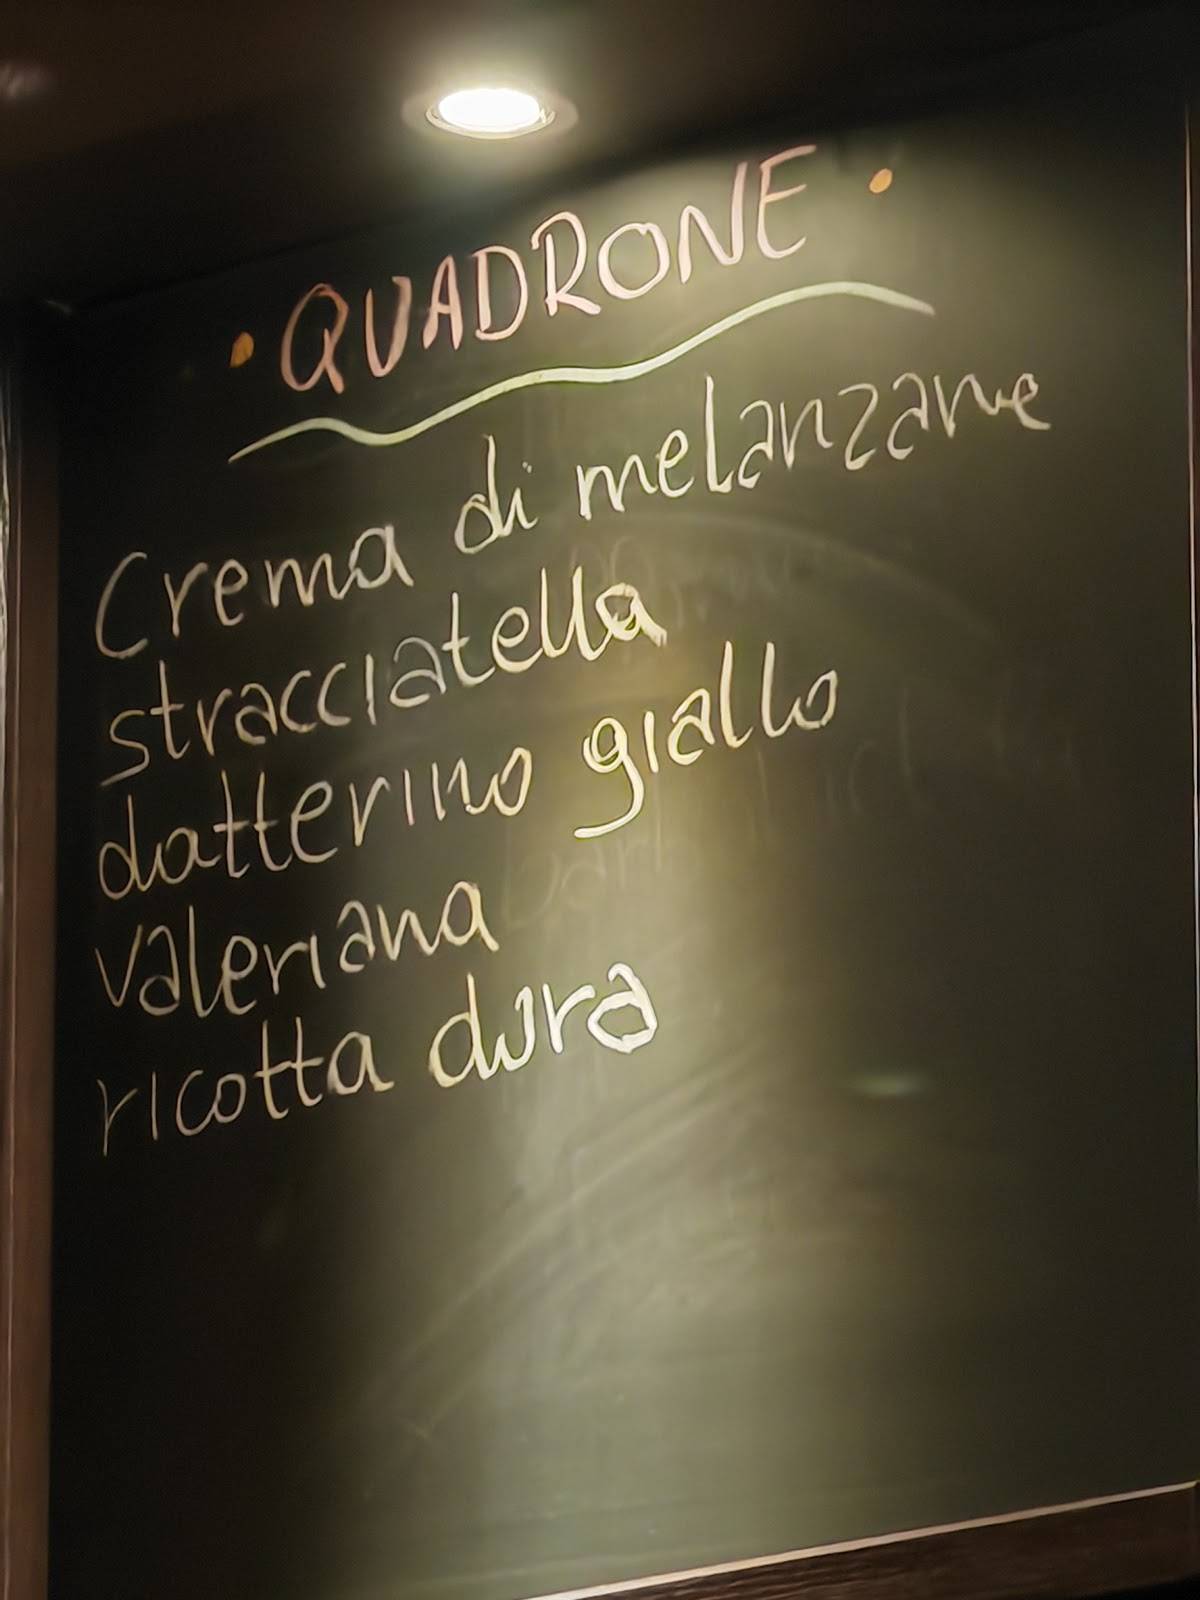 • QUADRONE •
Crema di melanzane
stracciatella
datterino giallo
valeriana
ricotta dura